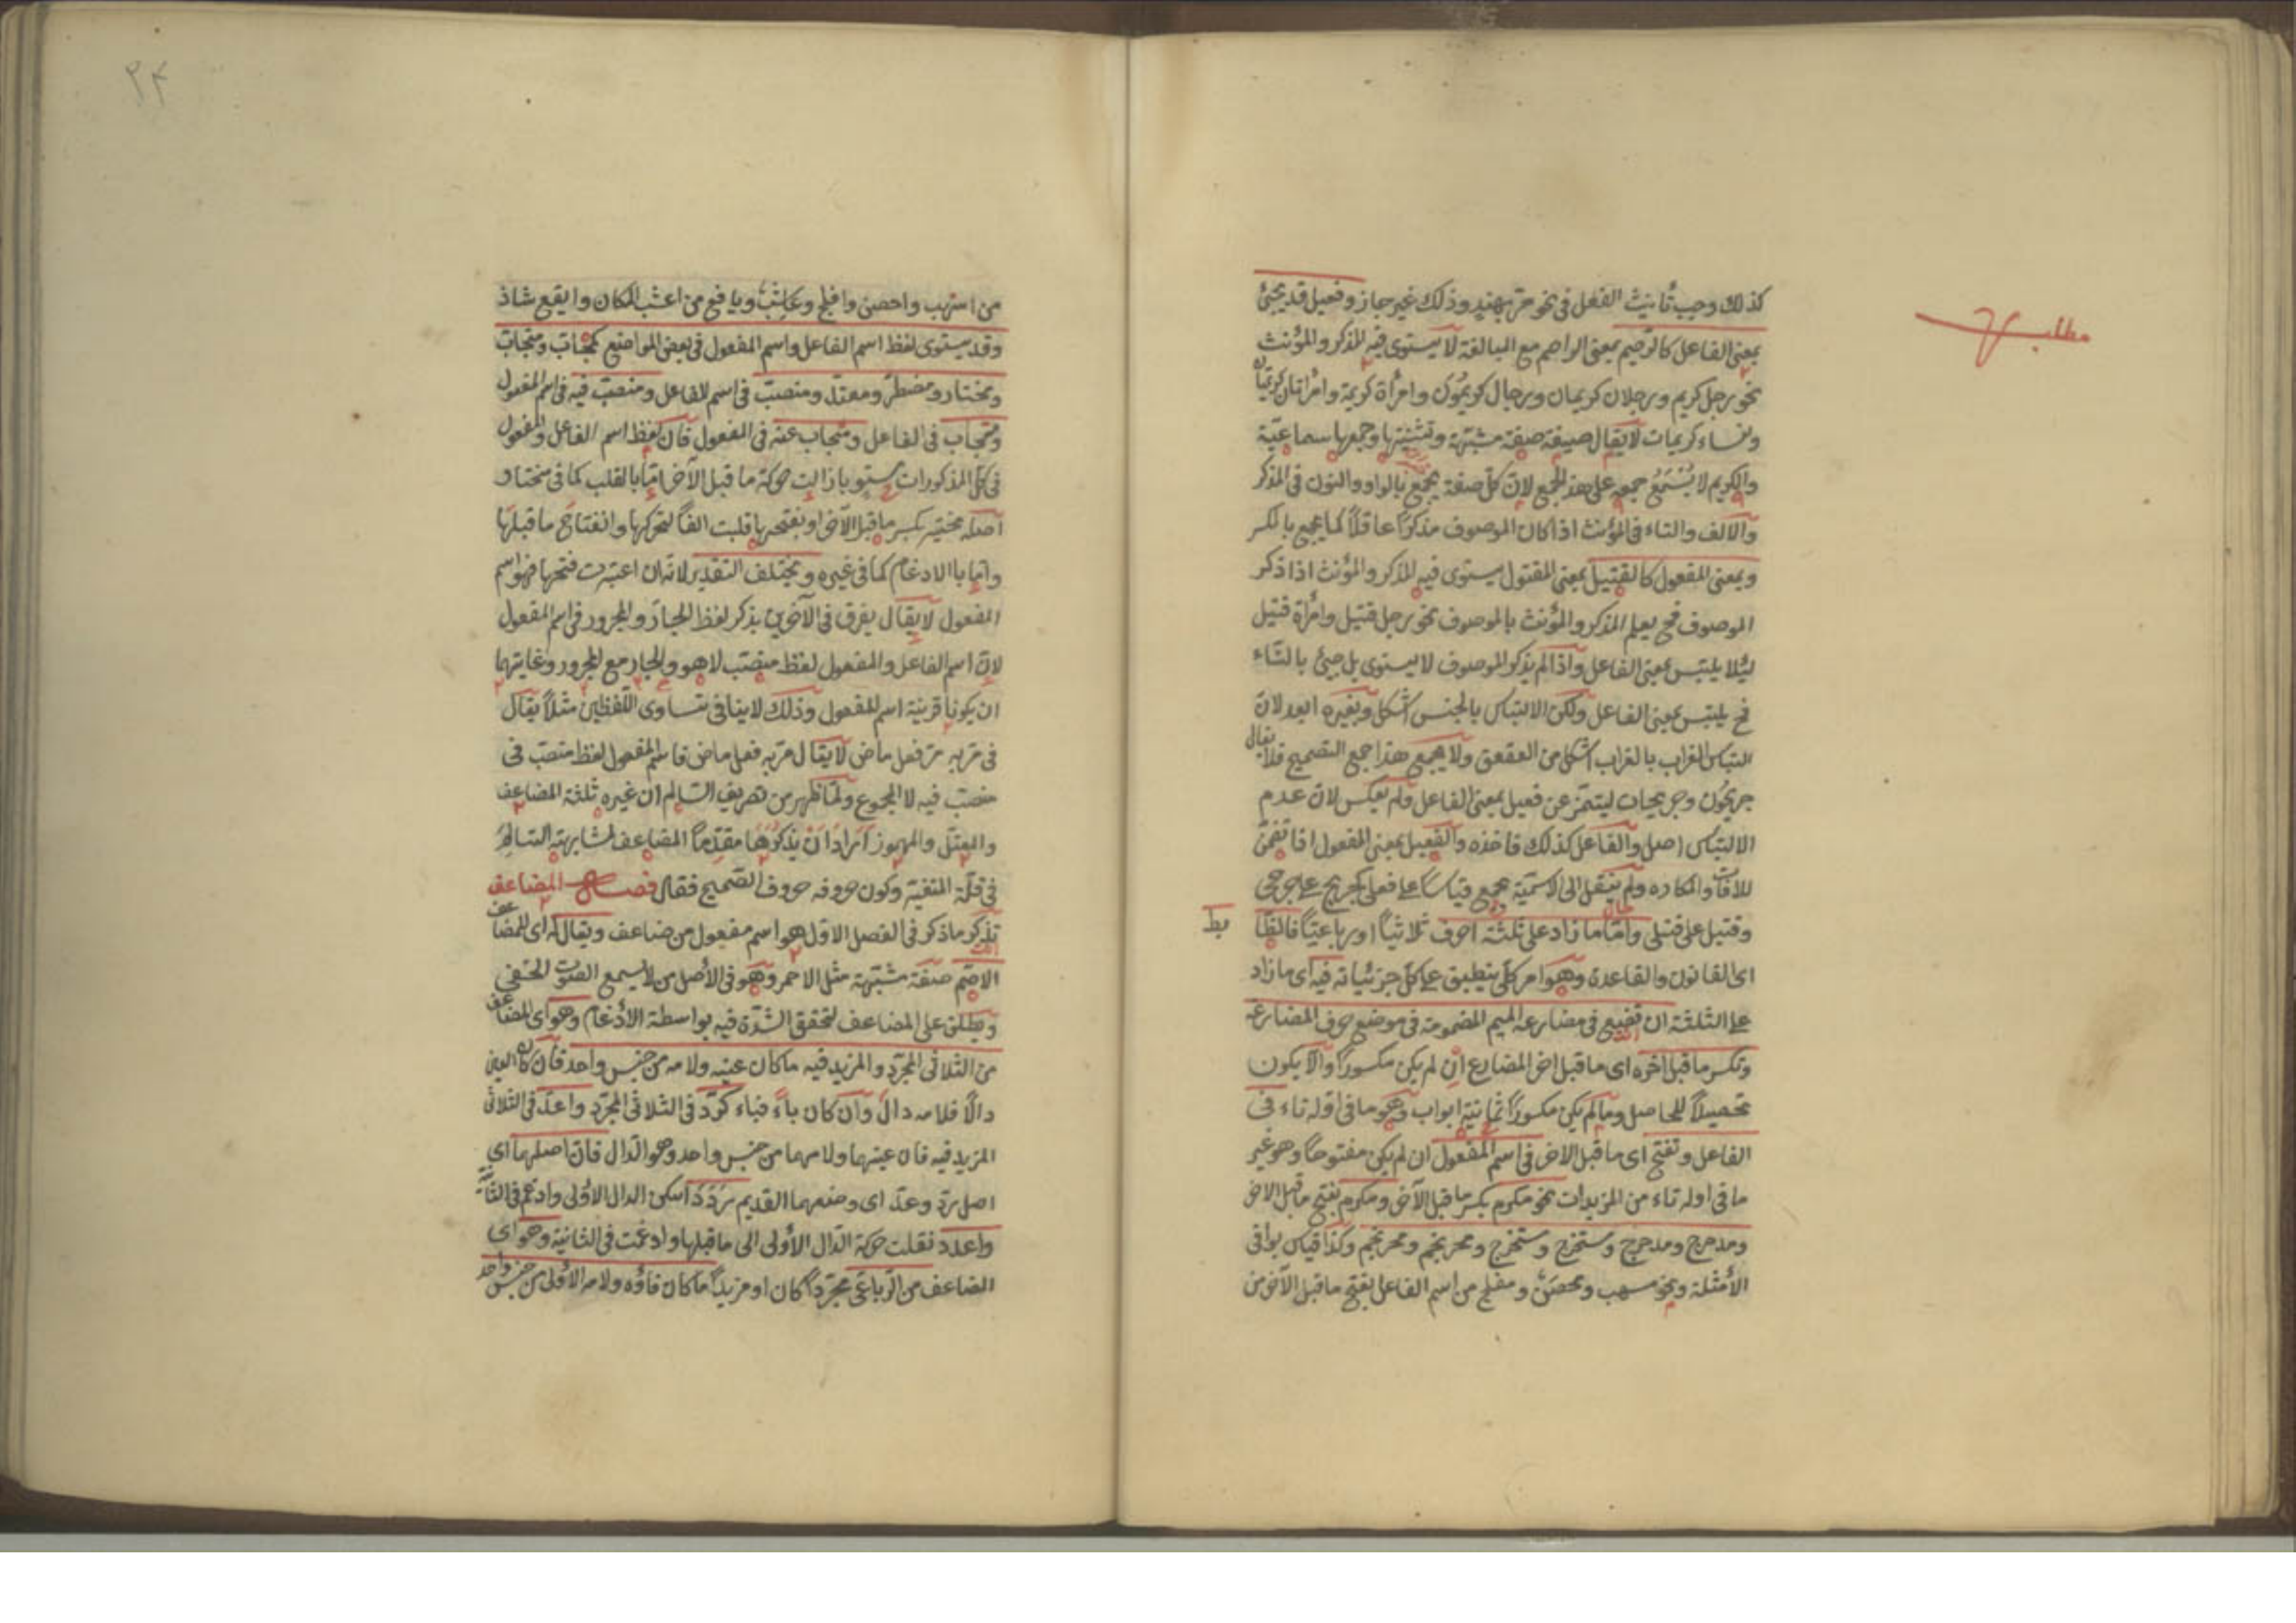 مطلب
كذلك وجب تأنيث الفعل في نحو مرّ بهند وذلك غير جائز وفعيل قد يجئ
بمعنى الفاعل كالرّحيم بمعنى الراحم مع المبالغة لا يستوى فيه المذكر والمؤنث
نحو رجل كريم ورجلان كريمان ورجال كريمون وامرأة كريمة وامرأتان كريمتان
ونساء كريمات لا يقال صيغة صفة مشبّهة وتثنيتها وجمعها سماعيّة
والكريم لا يُسْمَعُ جمعه على هذا الجمع لانّ كلّ صفة يجمع بالواو والنون في المذكر
والالف والتاء في المؤنث اذا كان الموصوف مذكرًا عاقلاً كما يجمع بالكسر
وبمعنى المفعول كالقتيل بمعنى المقتول يستوى فيه المذكر والمؤنث اذا ذكر
الموصوف فح يعلم المذكر والمؤنث بالموصوف نحو رجل قتيل وامرأة قتيل
لئلا يلتبس بمعنى الفاعل واذا لم يذكر الموصوف لا يستوى بل جئ بالتاء
فح يلتبس بمعنى الفاعل ولكن الالتباس بالجنس اشكل وبغيره ابعد لانّ
التباس الغراب بالغراب اشكل من العقعق ولا يجمع هذا جمع التصحيح فلا يقال
جريحون وجريحات ليتميّز عن فعيل بمعنى الفاعل ولم يعكس لان عدم
الالتباس اصل والفاعل كذلك فاخذه والفعيل بمعنى المفعول اذا تضمّن
للآفات والمكاره ولم ينتقل الى الاسميّة يجمع قياسًا على فعلى كجريح على جرحى
وقتيل على قتلى وامّا ما زاد على ثلثة احرف ثلاثيًّا او رباعيًّا فالضّا
بط
اى القانون والقاعدة وهو امر كلى ينطبق على كل جزئياته فيه اى ما زاد
على الثلثة ان تضع في مضارعه الميم المضمومة في موضع حرف المضارعة
وتكسر ما قبل آخره اى ما قبل اخر المضارع ان لم يكن مكسورًا والّا يكون
تحصيلاً للحاصل وما لم يكن مكسورًا ثمانية ابواب وهو ما في اوله تاء في
الفاعل وتفتح اى ما قبل الاخر في اسم المفعول ان لم يكن مفتوحًا وهو غير
ما في اوله تاء من المزيدات نحو مكرم بكسر ما قبل الآخر ومكرم بفتح ما قبل الاخر
ومدحرج ومدحرج ومستخرج ومستخرج ومحرنجم ومحرنجم وكذا قياس بواقى
الأمثلة ونحو مسهب ومحصن ومفلج من اسم الفاعل بفتح ما قبل الآخر من
٢٤
من اسهب واحصن وافلج وعاشب ويافع من اعشب المكان وايفع شاذ
وقد يستوى لفظ اسم الفاعل واسم المفعول في بعض المواضع كمحابّ ومتحابّ
ومختار ومضطر ومعتدّ ومنصبّ في اسم الفاعل ومنصبّ فيه في اسم المفعول
ومنجاب في الفاعل ومنجاب عنه في المفعول فان لفظ اسم الفاعل والمفعول
في كل المذكورات مستو بازالت حركة ما قبل الآخر امّا بالقلب كما في مختار
اصله مختير بكسر ما قبل الآخر او بفتحها قلبت الفًا لتحركها وانفتاح ما قبلها
وامّا بالادغام كما في غيره ويختلف التقدير لانه ان اعتبرت فتحها فهو اسم
المفعول لا يقال يفرق في الآخرين بذكر لفظ الجار والمجرور في اسم المفعول
لانّ اسم الفاعل والمفعول لفظ منصب لا هو والجار مع المجرور وغايتهما
ان يكونا قرينة اسم المفعول وذلك لا ينافى تساوى اللّفظين مثلاً يقال
في مرّ به مرّ فعل ماض لا يقال مرّ به فعل ماض فاسم المفعول لفظ منصبّ في
منصبّ فيه لا المجموع ولمّا ظهر من تعريف السّالم ان غيره ثلثة المضاعف
والمعتل والمهموز اراد ان يذكرها مقدّمًا المضاعف لمشابهته السّالم
في قلّة التغير وكون حروفه حروف الصّحيح فقال فصل المضاعف
تذكر ما ذكر في الفصل الاول هو اسم مفعول من ضاعف ويقال له اى للمضاعف
الاصمّ صفة مشبّهة مثل الاحمر وهو في الأصل من لا يسمع الصوت الخفى
ويطلق على المضاعف لتحقق الشدّة فيه بواسطة الادغام وهو اى المضاعف
من الثلاثى المجرّد والمزيد فيه ما كان عينه ولامه من جنس واحد فان كان العين
دالًا فلامه دال وان كان باءً فباء كردّ في الثلاثى المجرّد واعدّ في الثلاثى
المزيد فيه فان عينهما ولامهما من جنس واحد وهو الدّال فانّ اصلهما اى
اصل ردّ وعدّ اى وضعهما القديم رَدَدَ اسكن الدال الاولى وادغم في الثانية
واعدد نقلت حركة الدّال الأولى الى ما قبلها وادغمت في الثانية وهو اى
المضاعف من الرّباعى مجرّدًا كان او مزيدًا ما كان فاؤه ولامه الاولى من جنس واحد